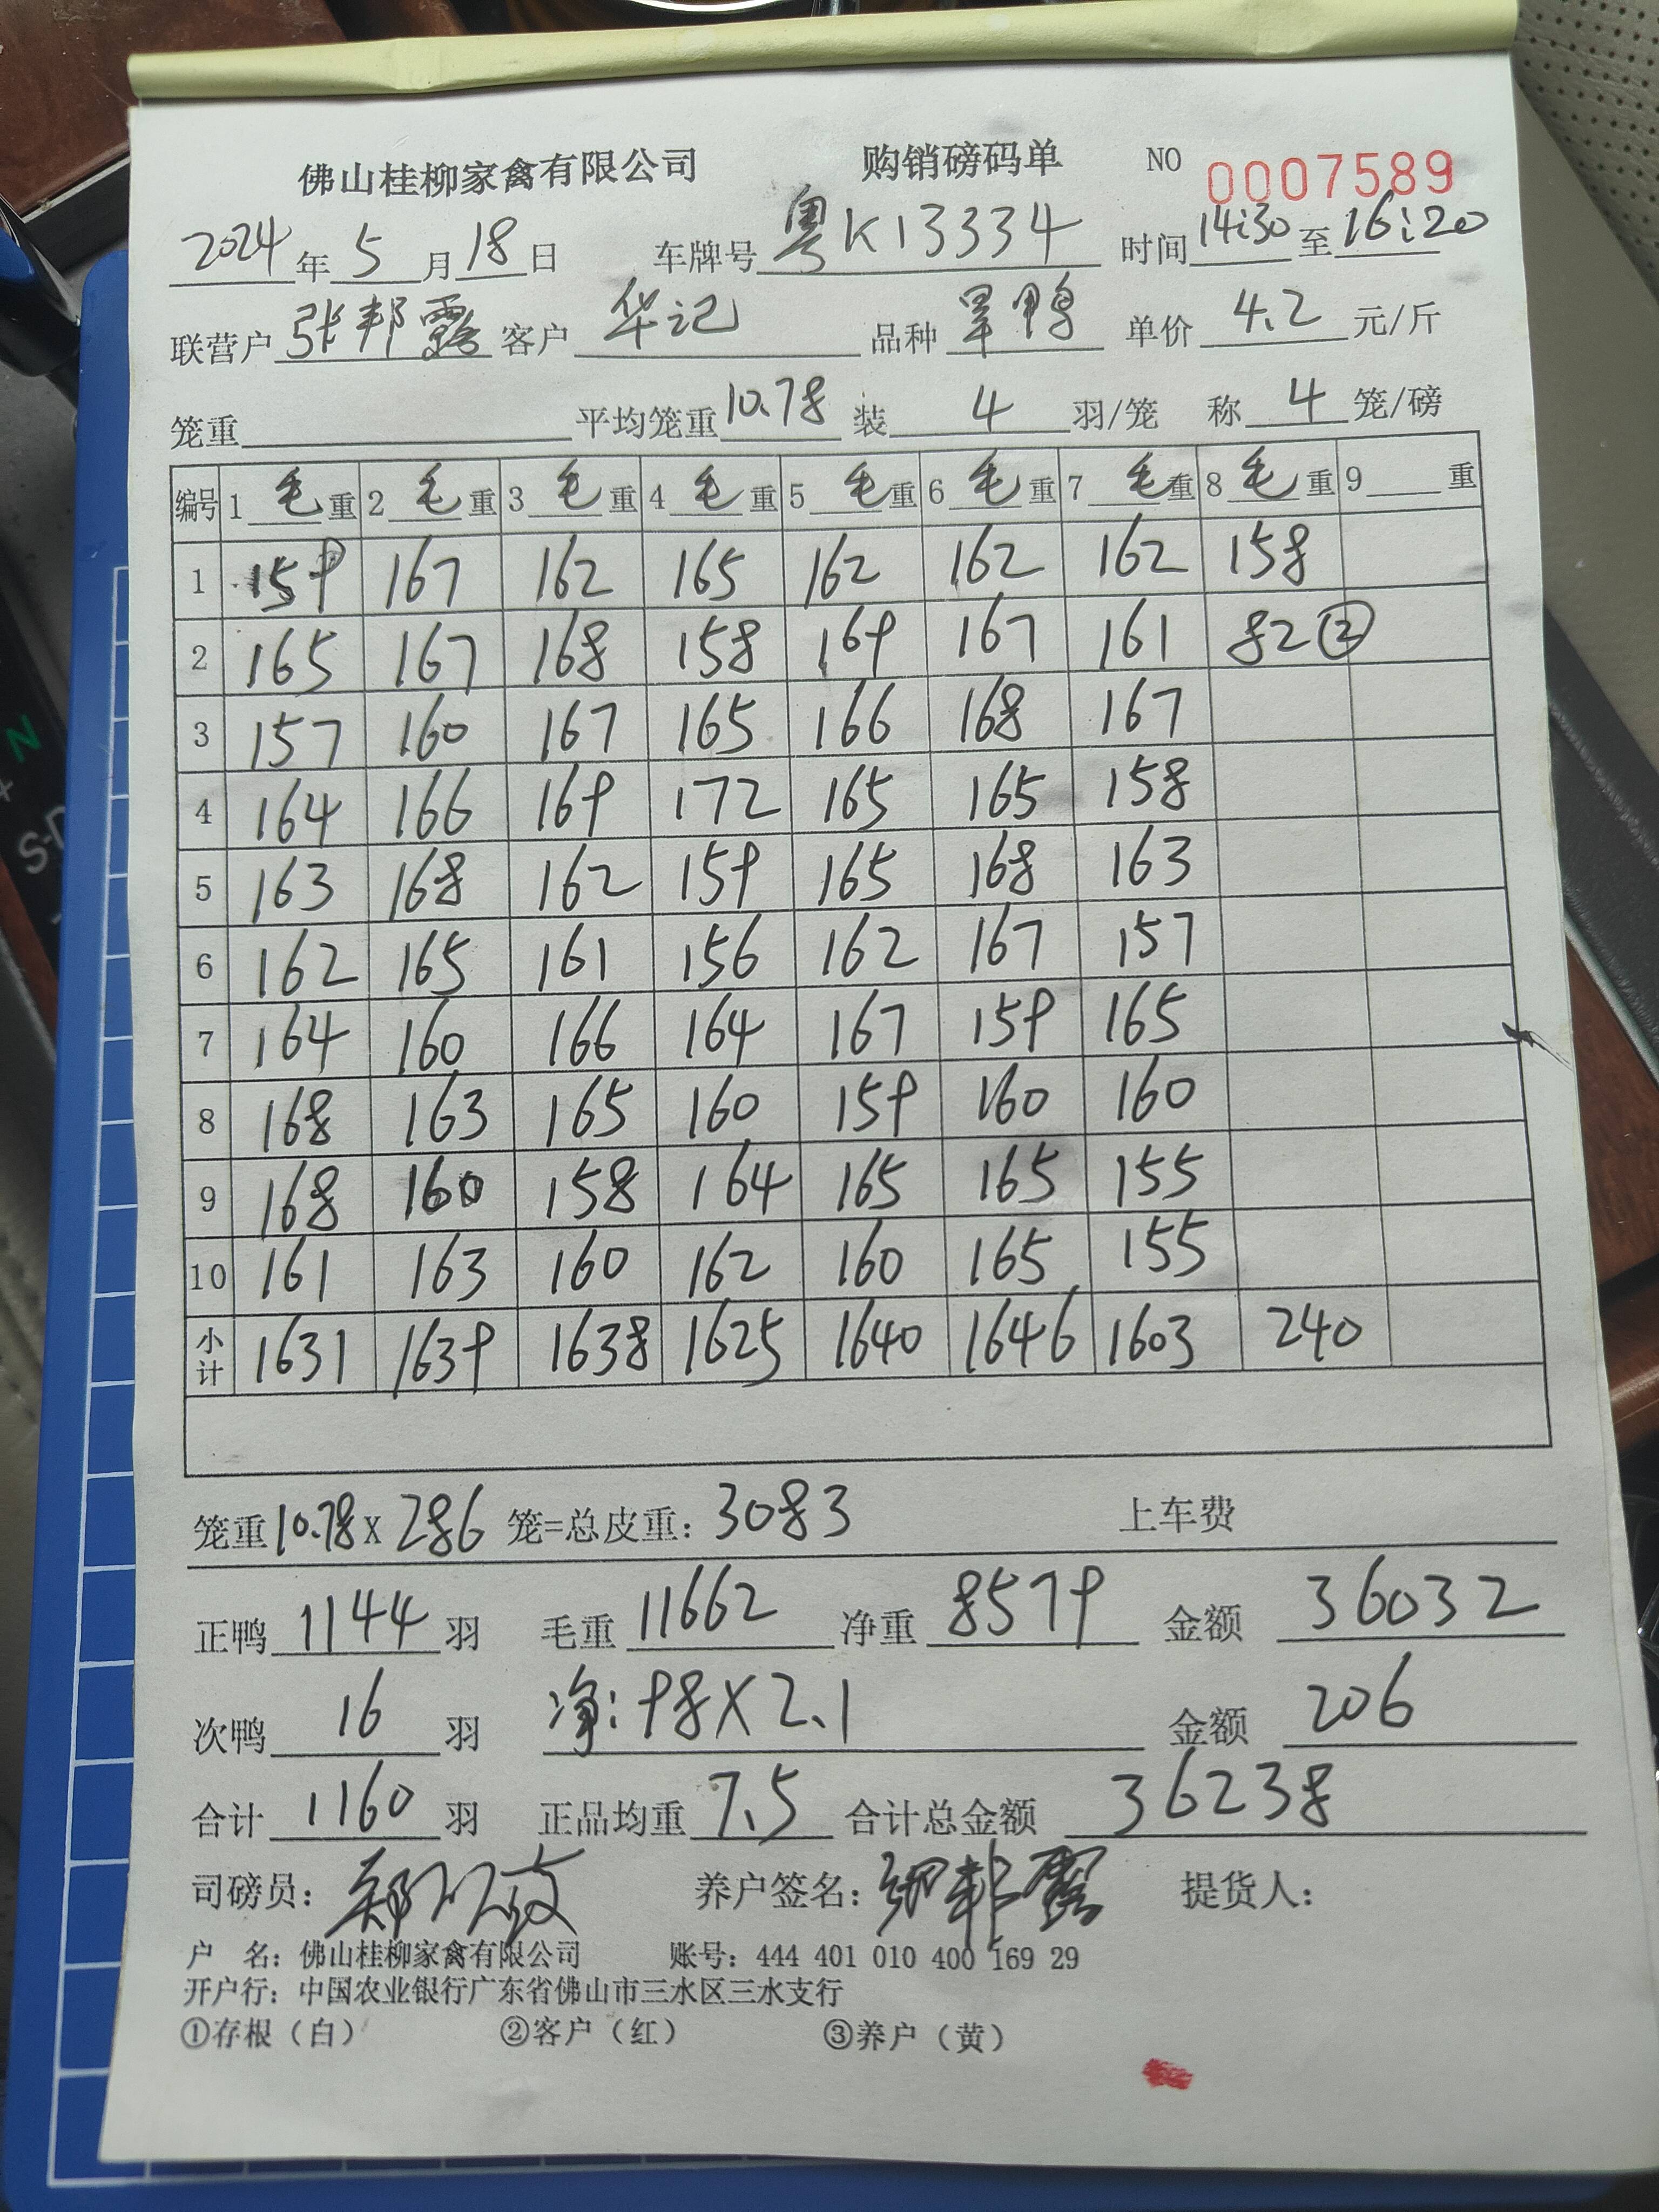 佛山桂柳家禽有限公司 购销磅码单 NO 0007589
2024年5月18日 车牌号 粤K13334 时间 14:30 至 16:20
联营户 张邦露 客户 华记 品种 旱鸭 单价 4.2 元/斤
笼重 平均笼重 10.78 装 4 羽/笼 称 4 笼/磅
编号 1 毛重 2 毛重 3 毛重 4 毛重 5 毛重 6 毛重 7 毛重 8 毛重 9 重
1 159 167 162 165 162 162 162 158
2 165 167 168 158 169 167 161 82②
3 157 160 167 165 166 168 167
4 164 166 169 172 165 165 158
5 163 168 162 159 165 168 163
6 162 165 161 156 162 167 157
7 164 160 166 164 167 159 165
8 168 163 165 160 159 160 160
9 168 160 158 164 165 165 155
10 161 163 160 162 160 165 155
小计 1631 1639 1638 1625 1640 1646 1603 240
笼重 10.78 X 286 笼=总皮重: 3083 上车费
正鸭 1144 羽 毛重 11662 净重 8579 金额 36032
次鸭 16 羽 净: 98X2.1 金额 206
合计 1160 羽 正品均重 7.5 合计总金额 36238
司磅员: 养户签名: 张邦露 提货人:
户 名: 佛山桂柳家禽有限公司 账号: 444 401 010 400 169 29
开户行: 中国农业银行广东省佛山市三水区三水支行
①存根（白） ②客户（红） ③养户（黄）